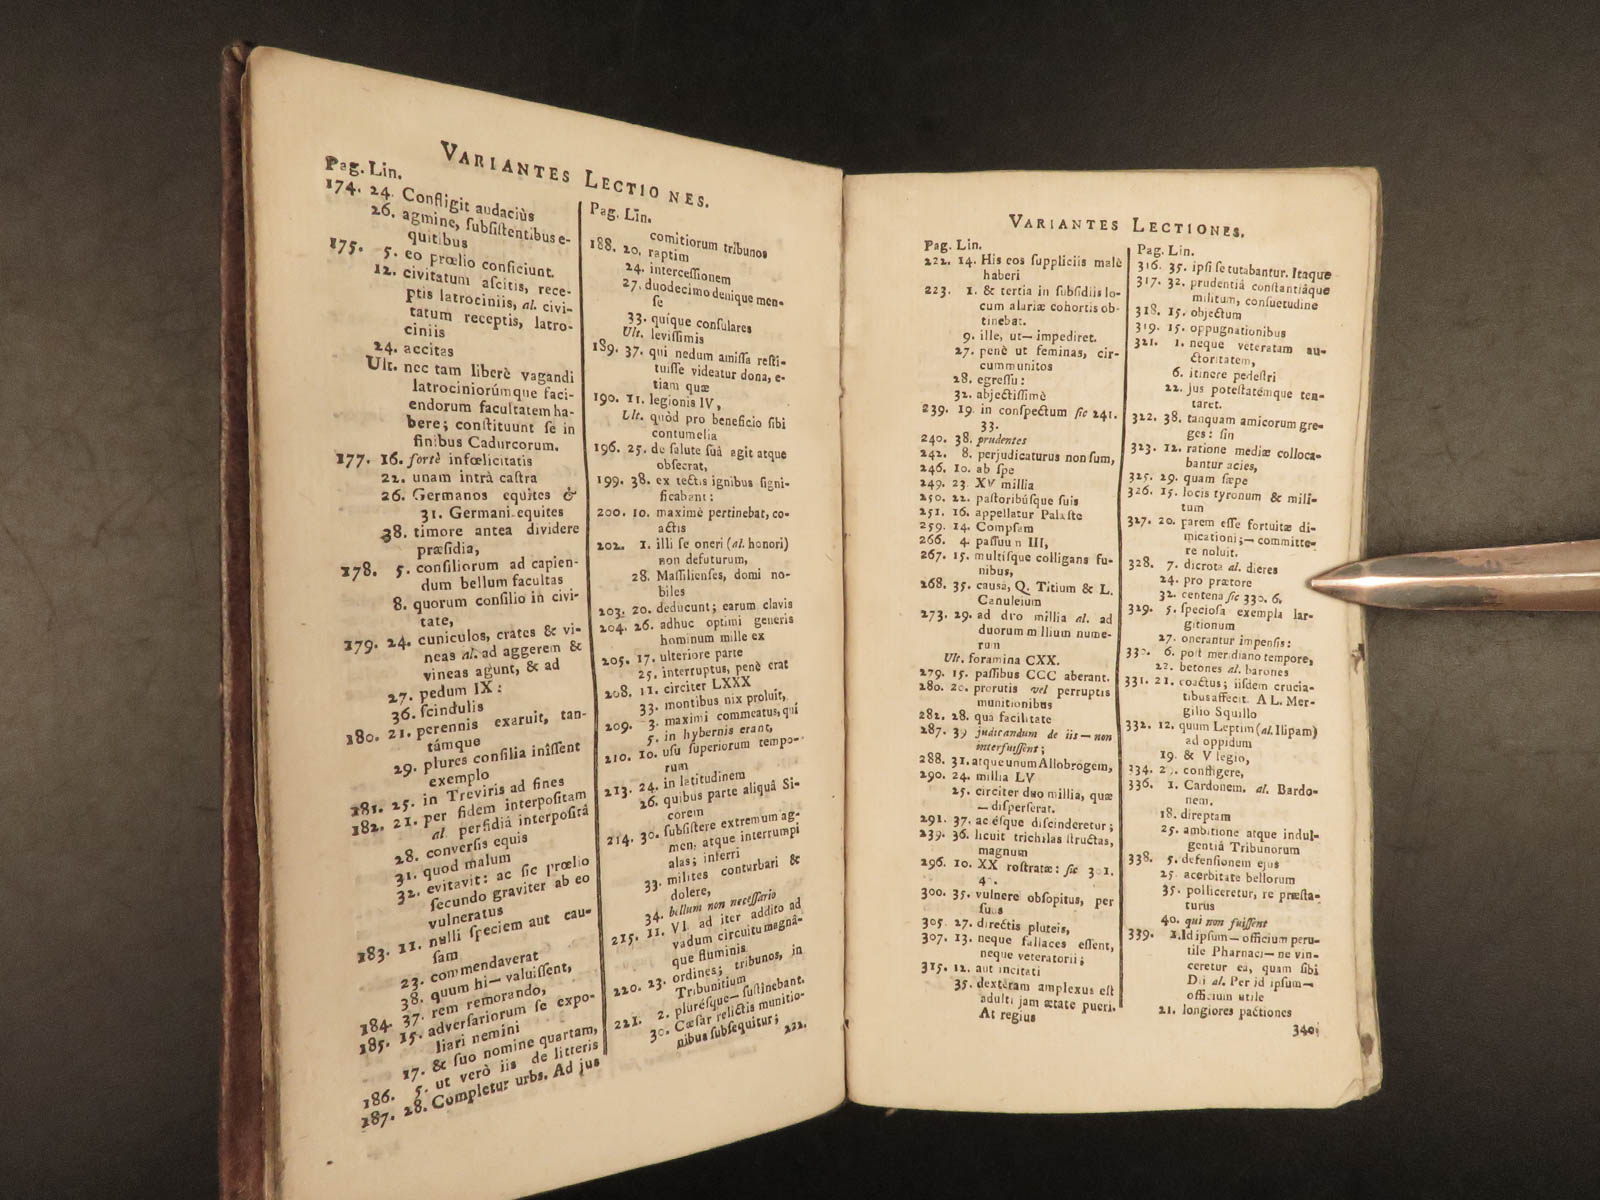 VARIANTES LECTIONES.
Pag. Lin.
174. 24. Confligit audaciùs
26. agmine, subsistentibus e-
quitibus
175. 5. eo prœlio conficiunt.
12. civitatum ascitis, rece-
ptis latrociniis, al. civi-
tatum receptis, latro-
ciniis
24. accitas
Ult. nec tam liberè vagandi
latrociniorúmque faci-
endorum facultatem ha-
bere; constituunt se in
finibus Cadurcorum.
177. 16. fortè infœlicitatis
22. unam intrà castra
26. Germanos equites &
31. Germani equites
38. timore antea dividere
præsidia,
178. 5. consiliorum ad capien-
dum bellum facultas
8. quorum consilio in civi-
tate,
179. 24. cuniculos, crates & vi-
neas al. ad aggerem &
vineas agunt, & ad
27. pedum IX:
36. scindulis
180. 21. perennis exaruit, tan-
támque
29. plures consilia inîssent
exemplo
181. 25. in Treviris ad fines
182. 21. per fidem interpositam
al. perfidiâ interpositâ
28. conversis equis
31. quod malum
32. evitavit: ac sic prœlio
secundo graviter ab eo
vulneratus
183. 11. nulli speciem aut cau-
sam
23. commendaverat
38. quum hi— valuissent,
184. 37. rem remorando,
185. 15. adversariorum se expo-
liari nemini
17. & suo nomine quartam,
186. 5. ut verò iis de litteris
187. 28. Completur urbs. Ad jus
Pag. Lin.
comitiorum tribunos
188. 20. raptim
24. intercessionem
27. duodecimo denique men-
se
33. quique consulares
Ult. levissimis
189. 37. qui nedum amissa resti-
tuisse videatur dona, e-
tiam quæ
190. 11. legionis IV,
Ult. quòd pro beneficio sibi
contumelia
196. 25. de salute suâ agit atque
obsecrat,
199. 38. ex tectis ignibus signi-
ficabant:
200. 10. maximè pertinebat, co-
actis
202. 1. illi se oneri (al. honori)
non defuturum,
28. Massilienses, domi no-
biles
203. 20. deducunt; earum clavis
204. 26. adhuc optimi generis
hominum mille ex
205. 17. ulteriore parte
25. interruptus, penè erat
208. 11. circiter LXXX
33. montibus nix proluit,
209. 3. maximi commeatus, qui
5. in hybernis erant,
210. 10. usu superiorum tempo-
rum
213. 24. in latitudinem
26. quibus parte aliquâ Si-
corem
214. 30. subsistere extremum ag-
men, atque interrumpi
alas; inferri
33. milites conturbari &
dolere,
34. bellum non necessario
215. 11. VI ad iter addito ad
vadum circuitu magnâ-
que fluminis
220. 23. ordines; tribunos, in
Tribunitium
221. 2. plurésque— sustinebant.
30. Cæsar relictis munitio-
nibus subsequitur;
222.
VARIANTES LECTIONES.
Pag. Lin.
222. 14. His eos suppliciis malè
haberi
223. 1. & tertia in subsidiis lo-
cum alariæ cohortis ob-
tinebat.
9. ille, ut— impediret.
27. penè ut feminas, cir-
cummunitos
28. egressu:
32. abjectissimè
239. 19. in conspectum sic 241.
33.
240. 38. prudentes
242. 8. perjudicaturus non sum,
246. 10. ab spe
249. 23. XV millia
250. 22. pastoribúsque suis
251. 16. appellatur Palæste
259. 14. Compsam
266. 4. passuun III,
267. 15. multisque colligans fu-
nibus,
268. 35. causâ, Q. Titium & L.
Canuleium
273. 29. ad duo millia al. ad
duorum millium nume-
rum
Ult. foramina CXX.
279. 15. passibus CCC aberant.
280. 20. prorutis vel perruptis
munitionibus
282. 28. qua facilitate
287. 39 judicandum de iis—non
interfuissent;
288. 31. atque unum Allobrogem,
290. 24. millia LV
25. circiter duo millia, quæ
—disperserat.
291. 37. aciésque discinderetur;
239. 36. licuit trichilas structas,
magnum
296. 10. XX rostratæ: sic 301.
4.
300. 35. vulnere obsopitus, per
suus
305. 27. directis pluteis,
307. 13. neque fallaces essent,
neque veteratorii;
315. 12. aut incitati
35. dexteram amplexus est
adulti jam ætate pueri.
At regius
Pag. Lin.
316. 35. ipsi se tutabantur. Itaque
317. 32. prudentiâ constantiâque
militum, consuetudine
318. 15. objectum
319. 15. oppugnationibus
321. 1. neque veteratam au-
ctoritatem,
6. itinere pedestri
22. jus potestatémque ten-
taret.
322. 38. tanquam amicorum gre-
ges: sin
323. 12. ratione mediæ colloca-
bantur acies,
325. 29. quam sæpe
326. 15. locis tyronum & mili-
tum
327. 20. parem esse fortuitæ di-
micationi;— committe-
re noluit.
328. 7. dicrota al. dieres
24. pro prætore
32. centena sic 330. 6.
329. 5. speciosa exempla lar-
gitionum
27. onerantur impensis:
330. 6. post meridiano tempore,
22. betones al. barones
331. 21. coactus; iisdem crucia-
tibus affecit. A L. Mer-
gilio Squillo
332. 12. quum Leptim (al. Ilipam)
ad oppidum
19. & V legio,
334. confligere,
336. 1. Cardonem. al. Bardo-
nem.
18. direptam
25. ambitione atque indul-
gentiâ Tribunorum
338. 5. defensionem ejus
25. acerbitate bellorum
35. polliceretur, re præsta-
turus
40. qui non fuissent
339. 1. Id ipsum— officium peru-
tile Pharnaci— ne vin-
ceretur ea, quam sibi
Dii al. Per id ipsum—
officium utile
21. longiores pactiones
340;